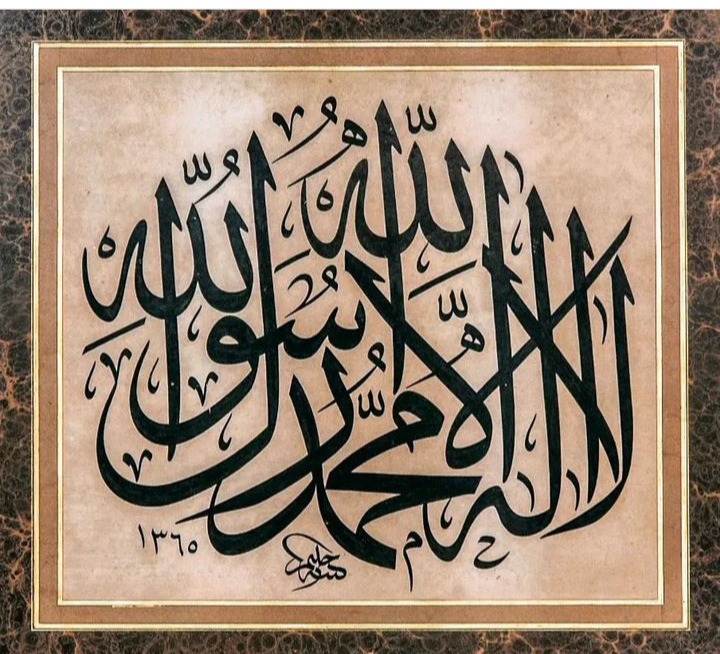 لا إله إلا الله محمد رسول الله
كتبه حليم
١٣٦٥